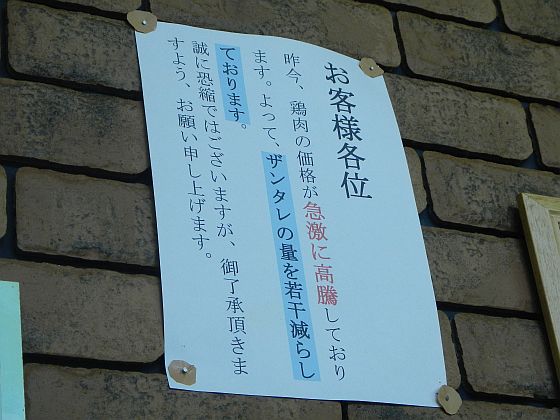 お客様各位
昨今、鶏肉の価格が急激に高騰しており
ます。よって、ザンタレの量を若干減らし
ております。
誠に恐縮ではございますが、御了承頂きま
すよう、お願い申し上げます。